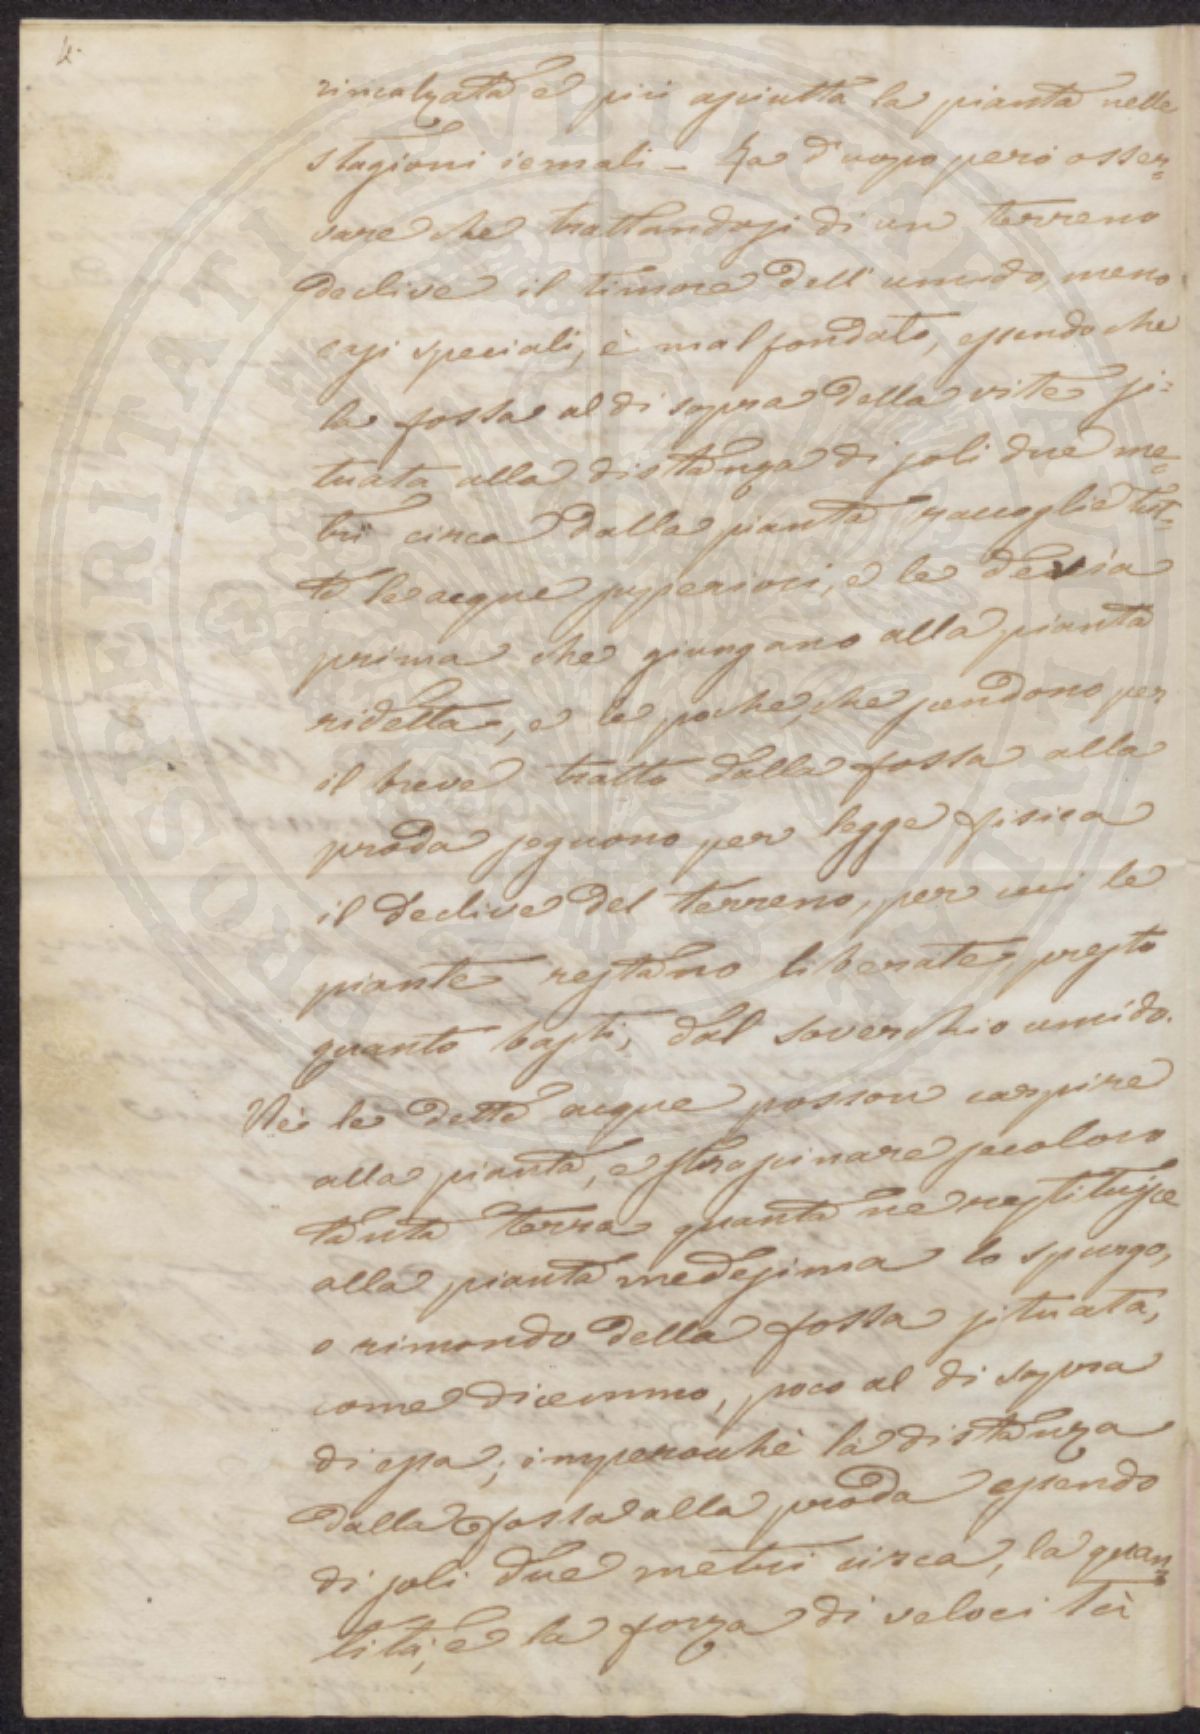 4.
rincalzata e più asciutta la pianta nelle
stagioni iemali – Fa d'uopo però osser-
vare che trattandosi di un terreno
declive il timore dell'umido, meno
casi speciali, è mal fondato, essendo che
la fossa al di sopra della vite si-
tuata alla distanza di soli due me-
tri circa dalla pianta raccoglie tut-
te le acque superiori, e le devia
prima che giungano alla pianta
ridetta, e le poche, che scendono per
il breve tratto dalla fossa alla
proda seguono per legge fisica
il declive del terreno, per cui le
piante restano liberate, presto
quanto basti, dal soverchio umido.
Nè le dette acque posson carpire
alla pianta, e strascinare secoloro
tanta terra quanta ne restituisce
alla pianta medesima lo spurgo,
o rimondo della fossa situata,
come dicemmo, poco al di sopra
di essa; imperocchè la distanza
dalla fossa alla proda essendo
di soli due metri circa, la quan-
tità, e la forza di velocità
PROSPERITATI PUBLICAE AUGENDAE